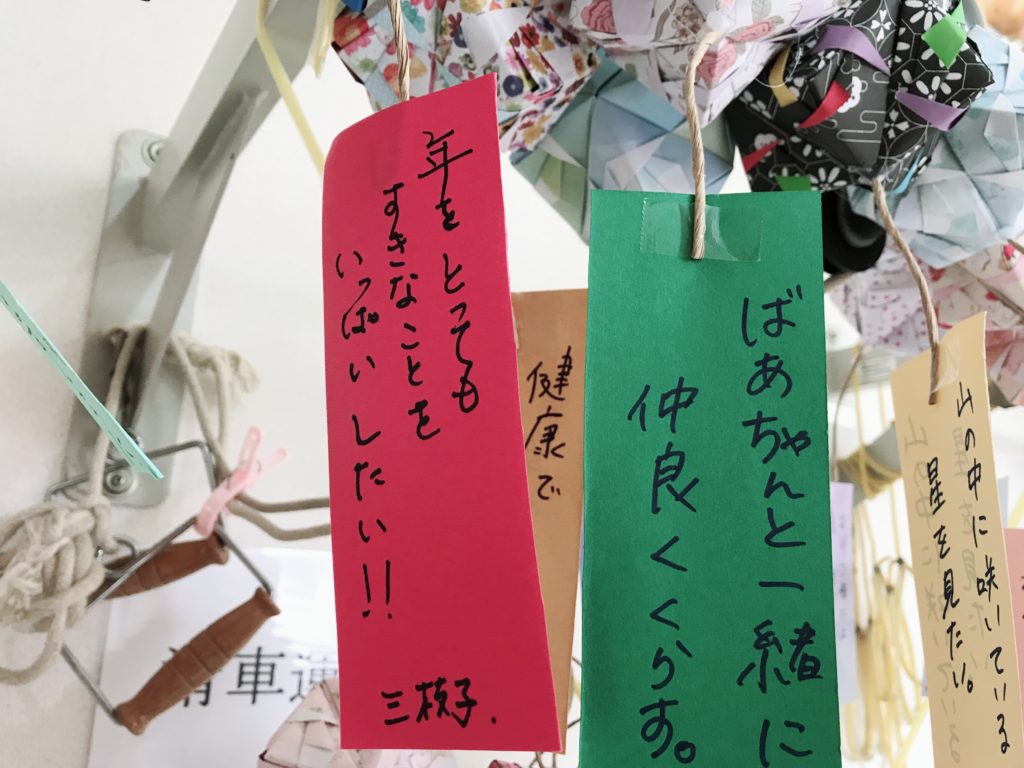 年をとっても
すきなことを
いっぱいしたい!!
三枝子.
健康で
ばあちゃんと一緒に
仲良くくらす。
山の中に咲いている
星を見たい。
車